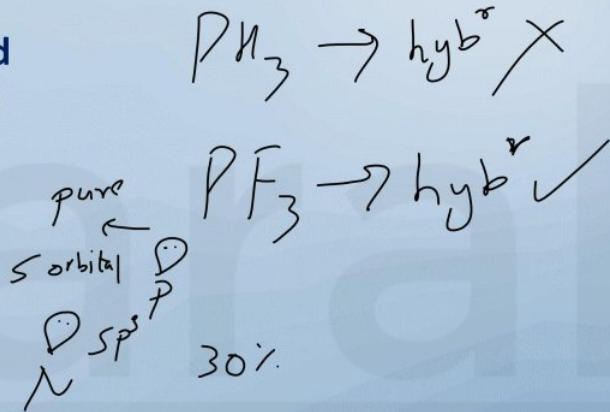 d
PH3 → hybr X
PF3 → hybr ✓
pure
←
s orbital
P
sp3
N
30%